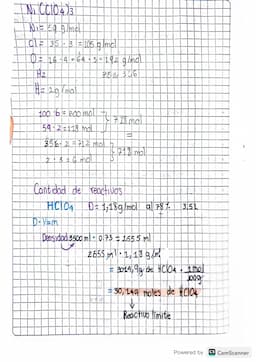 Ni (ClO4)3
Ni = 59 g/mol
Cl = 35 · 3 = 105 g/mol
O = 16 · 4 = 64 · 3 = 192 g/mol
H2 356
H = 2g/mol
100 · 6 = 600 mol } 718 mol
59 · 2 = 118 mol =
356 · 2 = 712 mol } 718 mol
2 · 3 = 6 mol
Cantidad de reactivos
HClO4 D = 1,18g/mol al 73% 3,5L
D · V = m
Densidad 3500 ml · 0.73 = 2555 ml
2555 ml · 1,18 g/ml
= 3014,9g de HClO4 · 1mol
100g
= 30,149 moles de HClO4
Reactivo límite
Powered by CamScanner